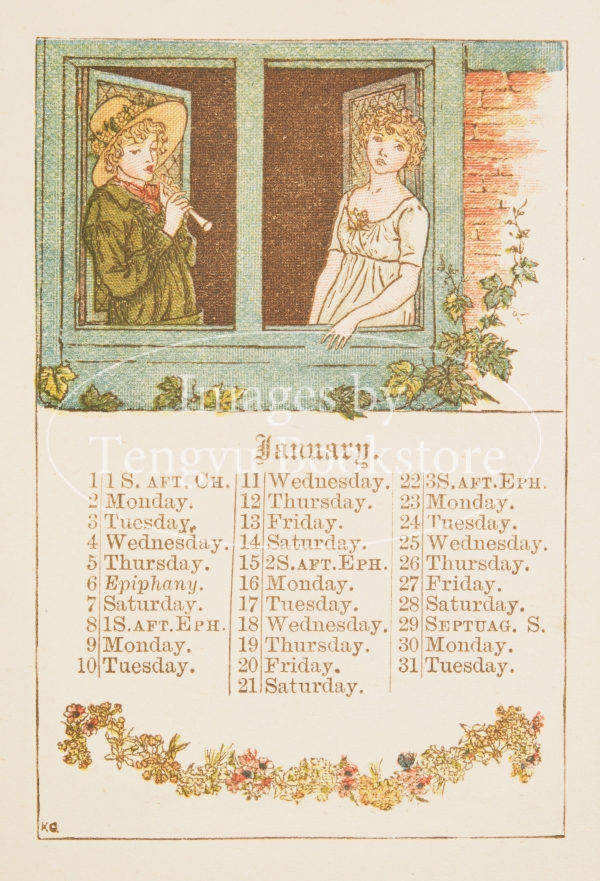 Images by
Tengyu Bookstore
January.
1 1 S. AFT. CH.
2 Monday.
3 Tuesday.
4 Wednesday.
5 Thursday.
6 Epiphany.
7 Saturday.
8 1S.AFT.EPH.
9 Monday.
10 Tuesday.
11 Wednesday.
12 Thursday.
13 Friday.
14 Saturday.
15 2S.AFT.EPH.
16 Monday.
17 Tuesday.
18 Wednesday.
19 Thursday.
20 Friday.
21 Saturday.
22 3S.AFT.EPH.
23 Monday.
24 Tuesday.
25 Wednesday.
26 Thursday.
27 Friday.
28 Saturday.
29 SEPTUAG. S.
30 Monday.
31 Tuesday.
KG.